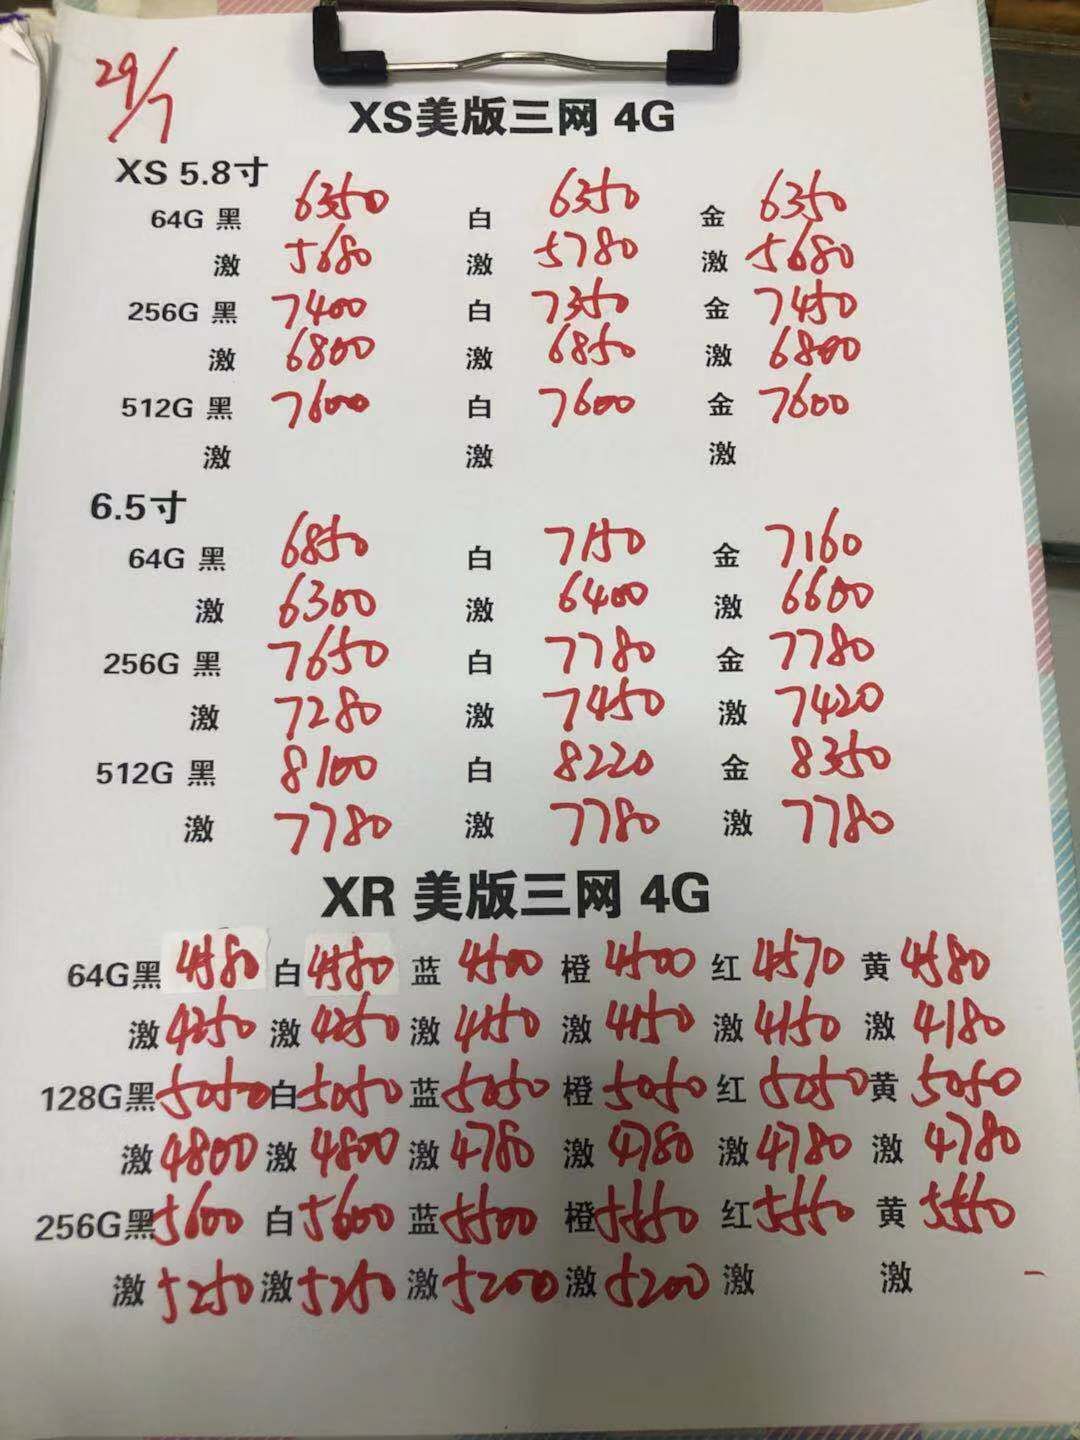 29/7
XS美版三网 4G
XS 5.8寸
64G 黑 6350 白 6350 金 6350
激 5680 激 5780 激 5680
256G 黑 7400 白 7350 金 7450
激 6800 激 6850 激 6800
512G 黑 7600 白 7600 金 7600
激 激 激
6.5寸
64G 黑 6850 白 7150 金 7160
激 6300 激 6400 激 6600
256G 黑 7650 白 7780 金 7780
激 7280 激 7450 激 7420
512G 黑 8100 白 8220 金 8350
激 7780 激 7780 激 7780
XR 美版三网 4G
64G黑 4580 白 4580 蓝 4500 橙 4500 红 4570 黄 4580
激 4250 激 4250 激 4150 激 4150 激 4150 激 4180
128G黑 5050 白 5050 蓝 5050 橙 5050 红 5050 黄 5050
激 4800 激 4800 激 4780 激 4780 激 4780 激 4780
256G黑 5600 白 5600 蓝 5500 橙 5550 红 5550 黄 5550
激 5250 激 5250 激 5200 激 5200 激 激